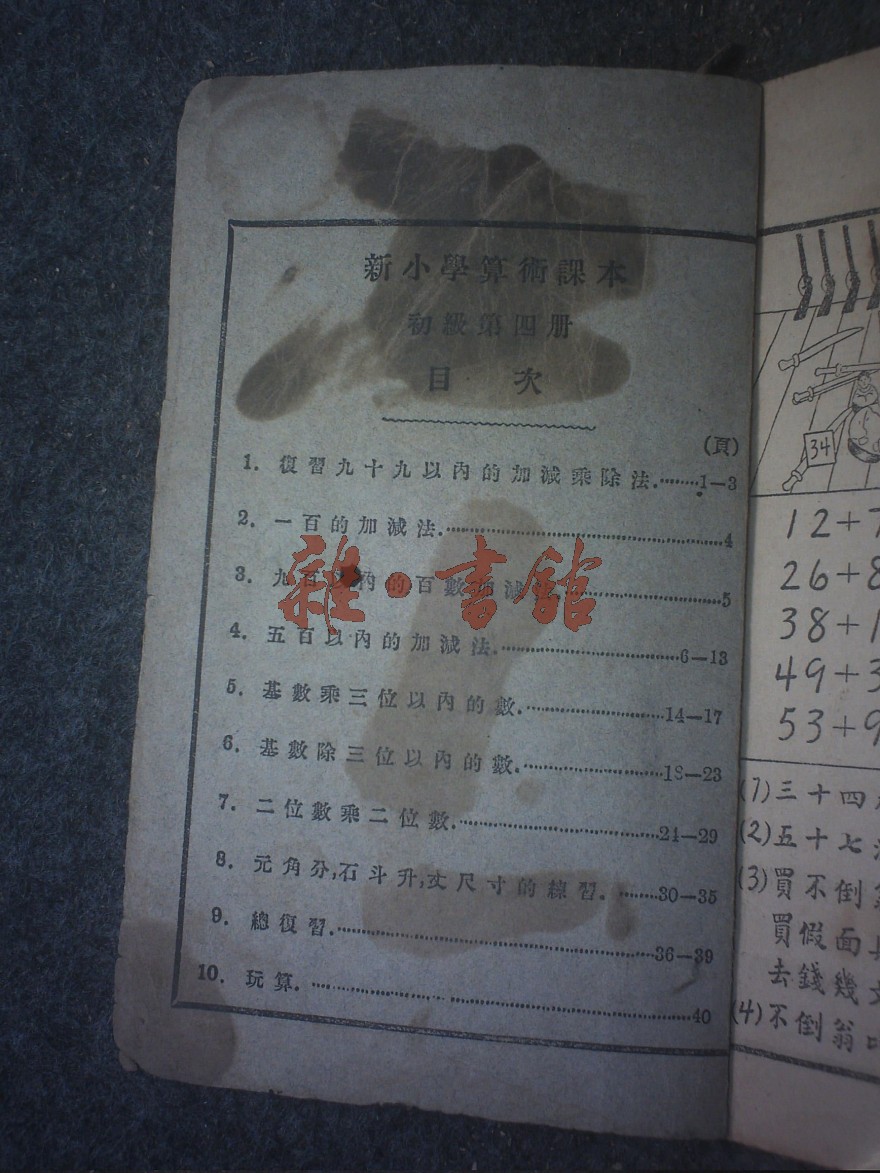 新小學算術課本
初級第四册
目次
(頁)
1. 復習九十九以內的加減乘除法.……1—3
2. 一百的加減法.……4
3. 九百以內的百數加減法.……5
4. 五百以內的加減法.……6—13
5. 基數乘三位以內的數.……14—17
6. 基數除三位以內的數.……18—23
7. 二位數乘二位數.……24—29
8. 元角分,石斗升,丈尺寸的練習.……30—35
9. 總復習.……36—39
10. 玩算.……40
雜·書館
34
12+7
26+8
38+1
49+3
53+9
(1)三十四
(2)五十七
(3)買不倒
買假面
去錢幾
(4)不倒翁